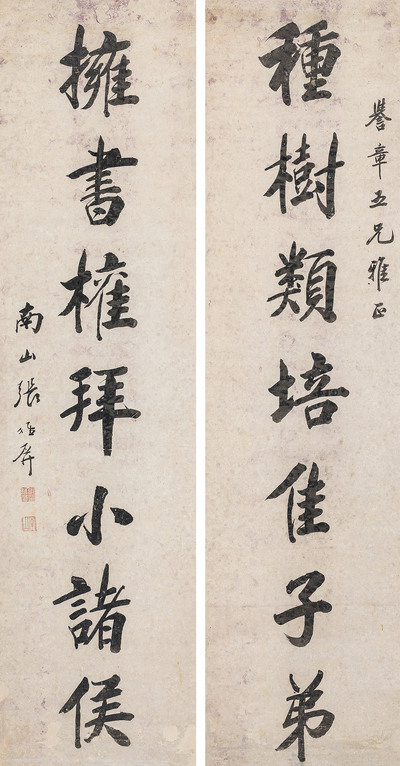 譽章五兄雅正
種樹類培佳子弟
擁書權拜小諸侯
南山張維屏